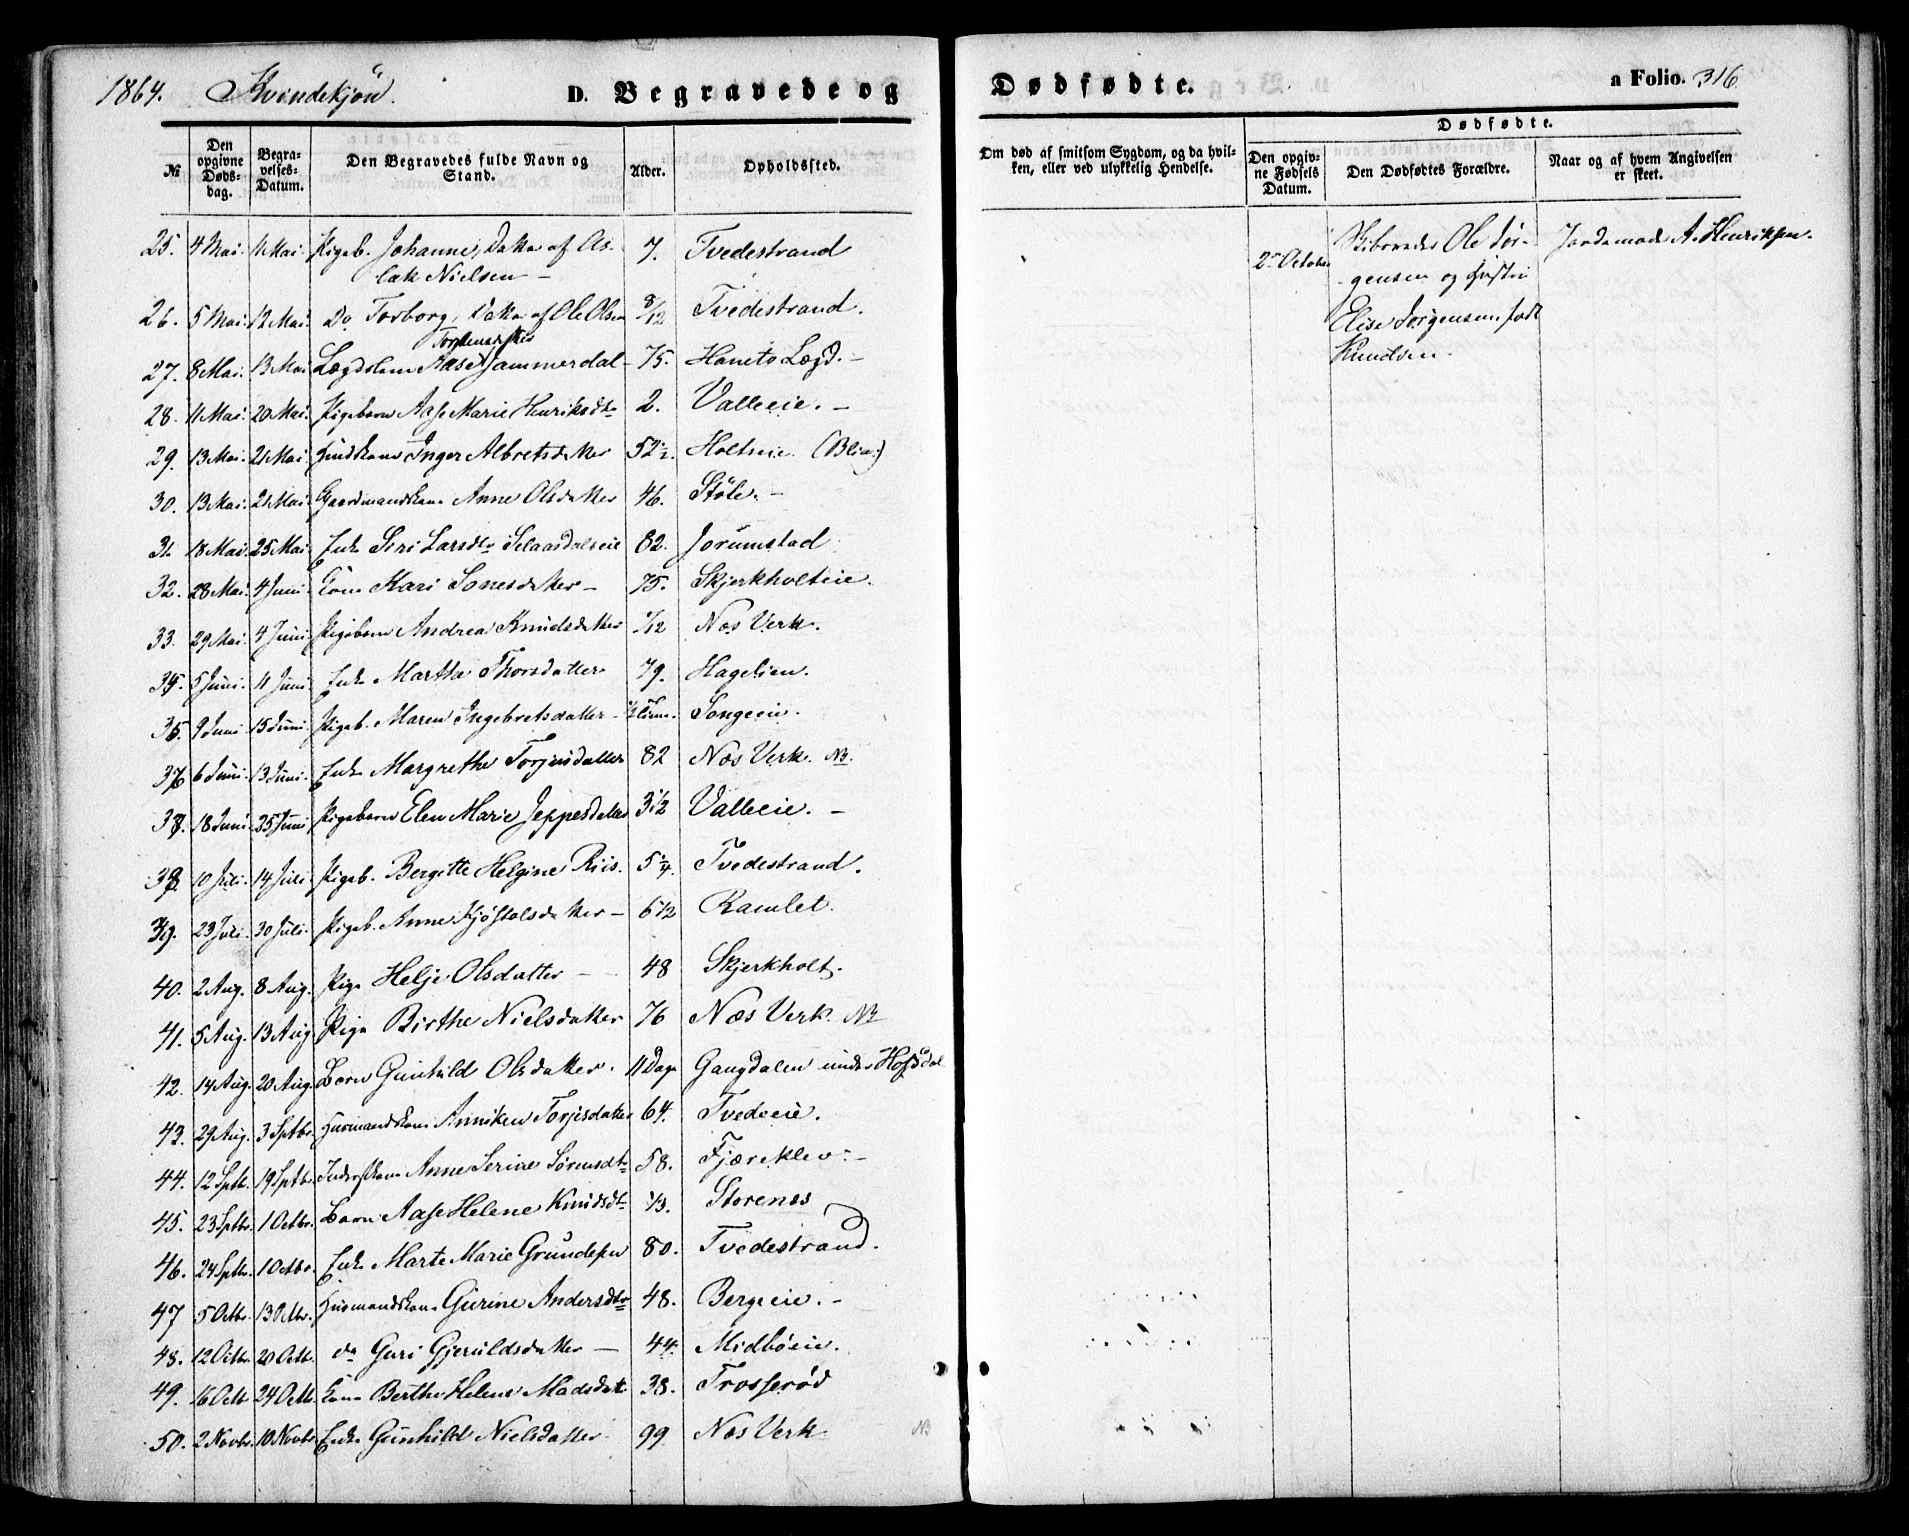 1864. Kvindekjøn.
D. Begravede og Dødfødte. a Folio. 316
№ | Den opgivne Dødsdag. | Begravelses-Datum. | Den Begravedes fulde Navn og Stand. | Alder. | Opholdssted. | Om død af smitsom Sygdom, og da hvilken, eller ved ulykkelig Hendelse. | Dødfødte. | Den opgivne Fødsels Datum. | Den Dødfødtes Forældre. | Naar og af hvem Angivelsen er skeet.
25. 4 Mai. 11 Mai. Pigeb. Johanne, Datter af As-
lak Nielsen – 7. Tvedestrand
26. 5 Mai. 12 Mai. Do Torborg, Datter af Ole Olsen 8/12 Tvedestrand.
27. 8 Mai. 13 Mai Lægdslem Aase Jammerdal – 75. Hanets Lægd. –
28. 11 Mai. 20 Mai. Pigebarn Aase Marie Henriksdtr 2. Valleeie. –
29. 13 Mai. 21 Mai. Inger Albretsdatter 52 1/2. Holtseie. (Blin.)
30. 13 Mai. 21 Mai. Gaardmandskone Anne Olsdatter 46. Støle. –
31. 18 Mai. 25 Mai. Enke Siri Larsdtr Selaasdalseie 82. Jorumstad
32. 28 Mai. 4 Juni. Kari Tonesdatter – 75. Skjerkholteie.
33. 29 Mai. 4 Juni. Pigebarn Andrea Knudsdatter 1/12 Næs Verk.
34. 5 Juni. 11 Juni. Enke Martha Thorsdatter 79. Hagelien.
35. 9 Juni 15 Juni. Pigeb. Maren Ingebretsdatter – 1/2 Time. Songeeie.
36 6 Juni. 13 Juni. Enke Margrethe Torjusdatter 82 Næs Verk. NB.
37. 18 Juni 25 Juni Pigebarn Elen Marie Jeppesdatter 3 1/2 Valleeie. –
38. 10 Juli. 14 Juli. Pigeb. Bergitte Helgine Riis. 5 1/4. Tvedestrand.
39. 23 Juli. 30 Juli. Pigeb. Anne Kjøstolsdatter – 6 1/2 Ramlet.
40. 2 Aug. 8 Aug. Pige Helje Olsdatter – 48 Skjerkholt.
41. 5 Aug. 13 Aug. Pige Birthe Nielsdatter 76 Næs Verk. NB
42. 14 Aug. 20 Aug. Barn Gunhild Olsdatter. 11 Dage Gangdalen under Hofsdal
43. 29 Aug. 3 Septbr. Huusmandskone Anniken Torjusdatter 64. Tvedeeie.
44. 12 Septb. 19 Septb. Inderstkone Anne Serine Sørensdtr 58. Fjæreklev. –
45. 23 Septbr. 1 Octbr. Barn Aase Helene Knudsdtr 1/3. Storenes
46. 24 Septbr. 1 Octbr. Enke Marte Marie Grundesen 80. Tvedestrand.
47 5 Octbr. 13 Octbr. Huusmandskone Gurine Andersdtr 48. Bergeeie. –
48. 12 Octbr. 20 Octb. do Guri Gjeruldsdatter – 44. Midbøeie.
49. 16 Octb 24 Octb. Kone Berthe Helene Madsdatter 38. Trosserød
50. 2 Novbr. 10 Novbr. Enke Gunhild Nielsdatter. 99 Næs Verk NB
2 October Ole Jør-
gensen og Hustru
Elise Jørgensen, født
Knudsen.
Jordemoder A. Henriksen.